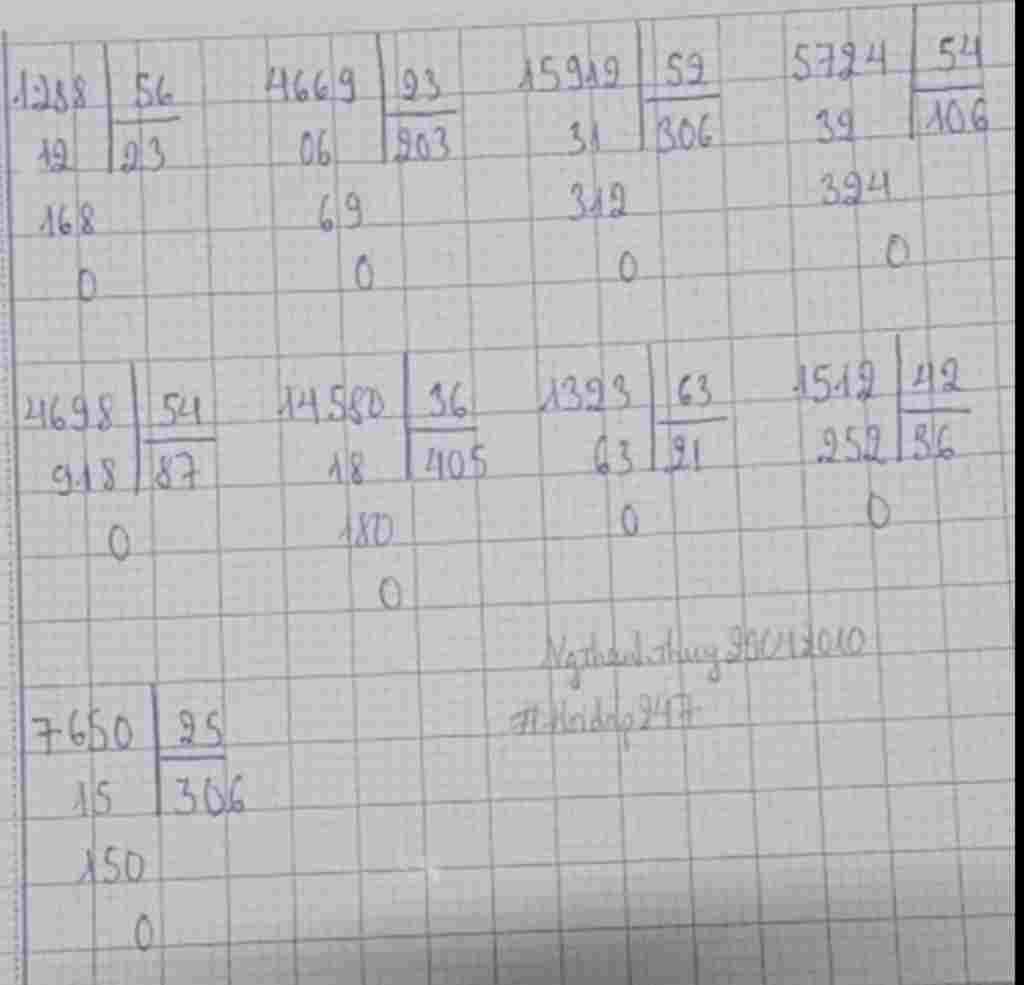 1288 56 4669 23 15912 52 5724 54
12 23 06 203 31 306 32 106
168 69 312 324
0 0 0 0
4698 54 14580 36 1323 63 1512 42
918 87 18 405 63 21 252 36
0 180 0 0
0
7650 25
15 306
150
0